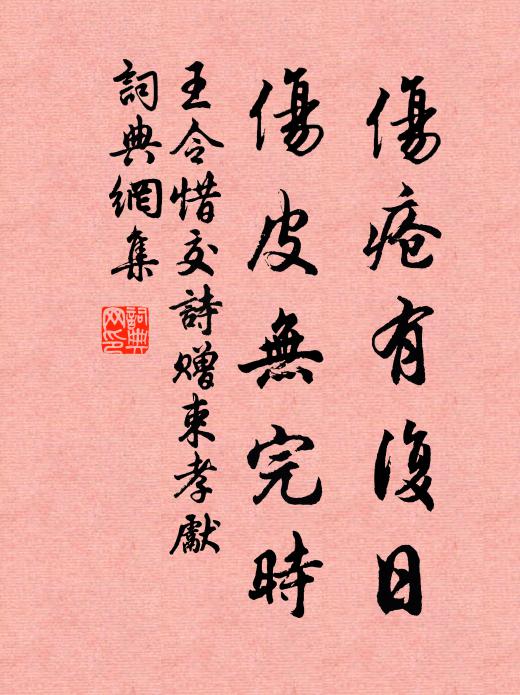 傷瘡有復日
傷皮無完時
王令惜交詩贈束孝獻
詞典網集
詞典網印